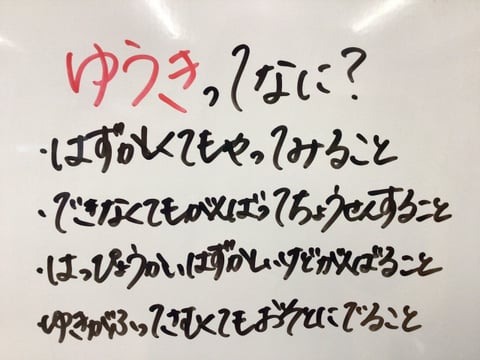 ゆうきってなに?
・はずかしくてもやってみること
・できなくてもがんばってちょうせんすること
・はっぴょうかいはずかしいけどがんばること
ゆきがふってさむくてもおそとにでること